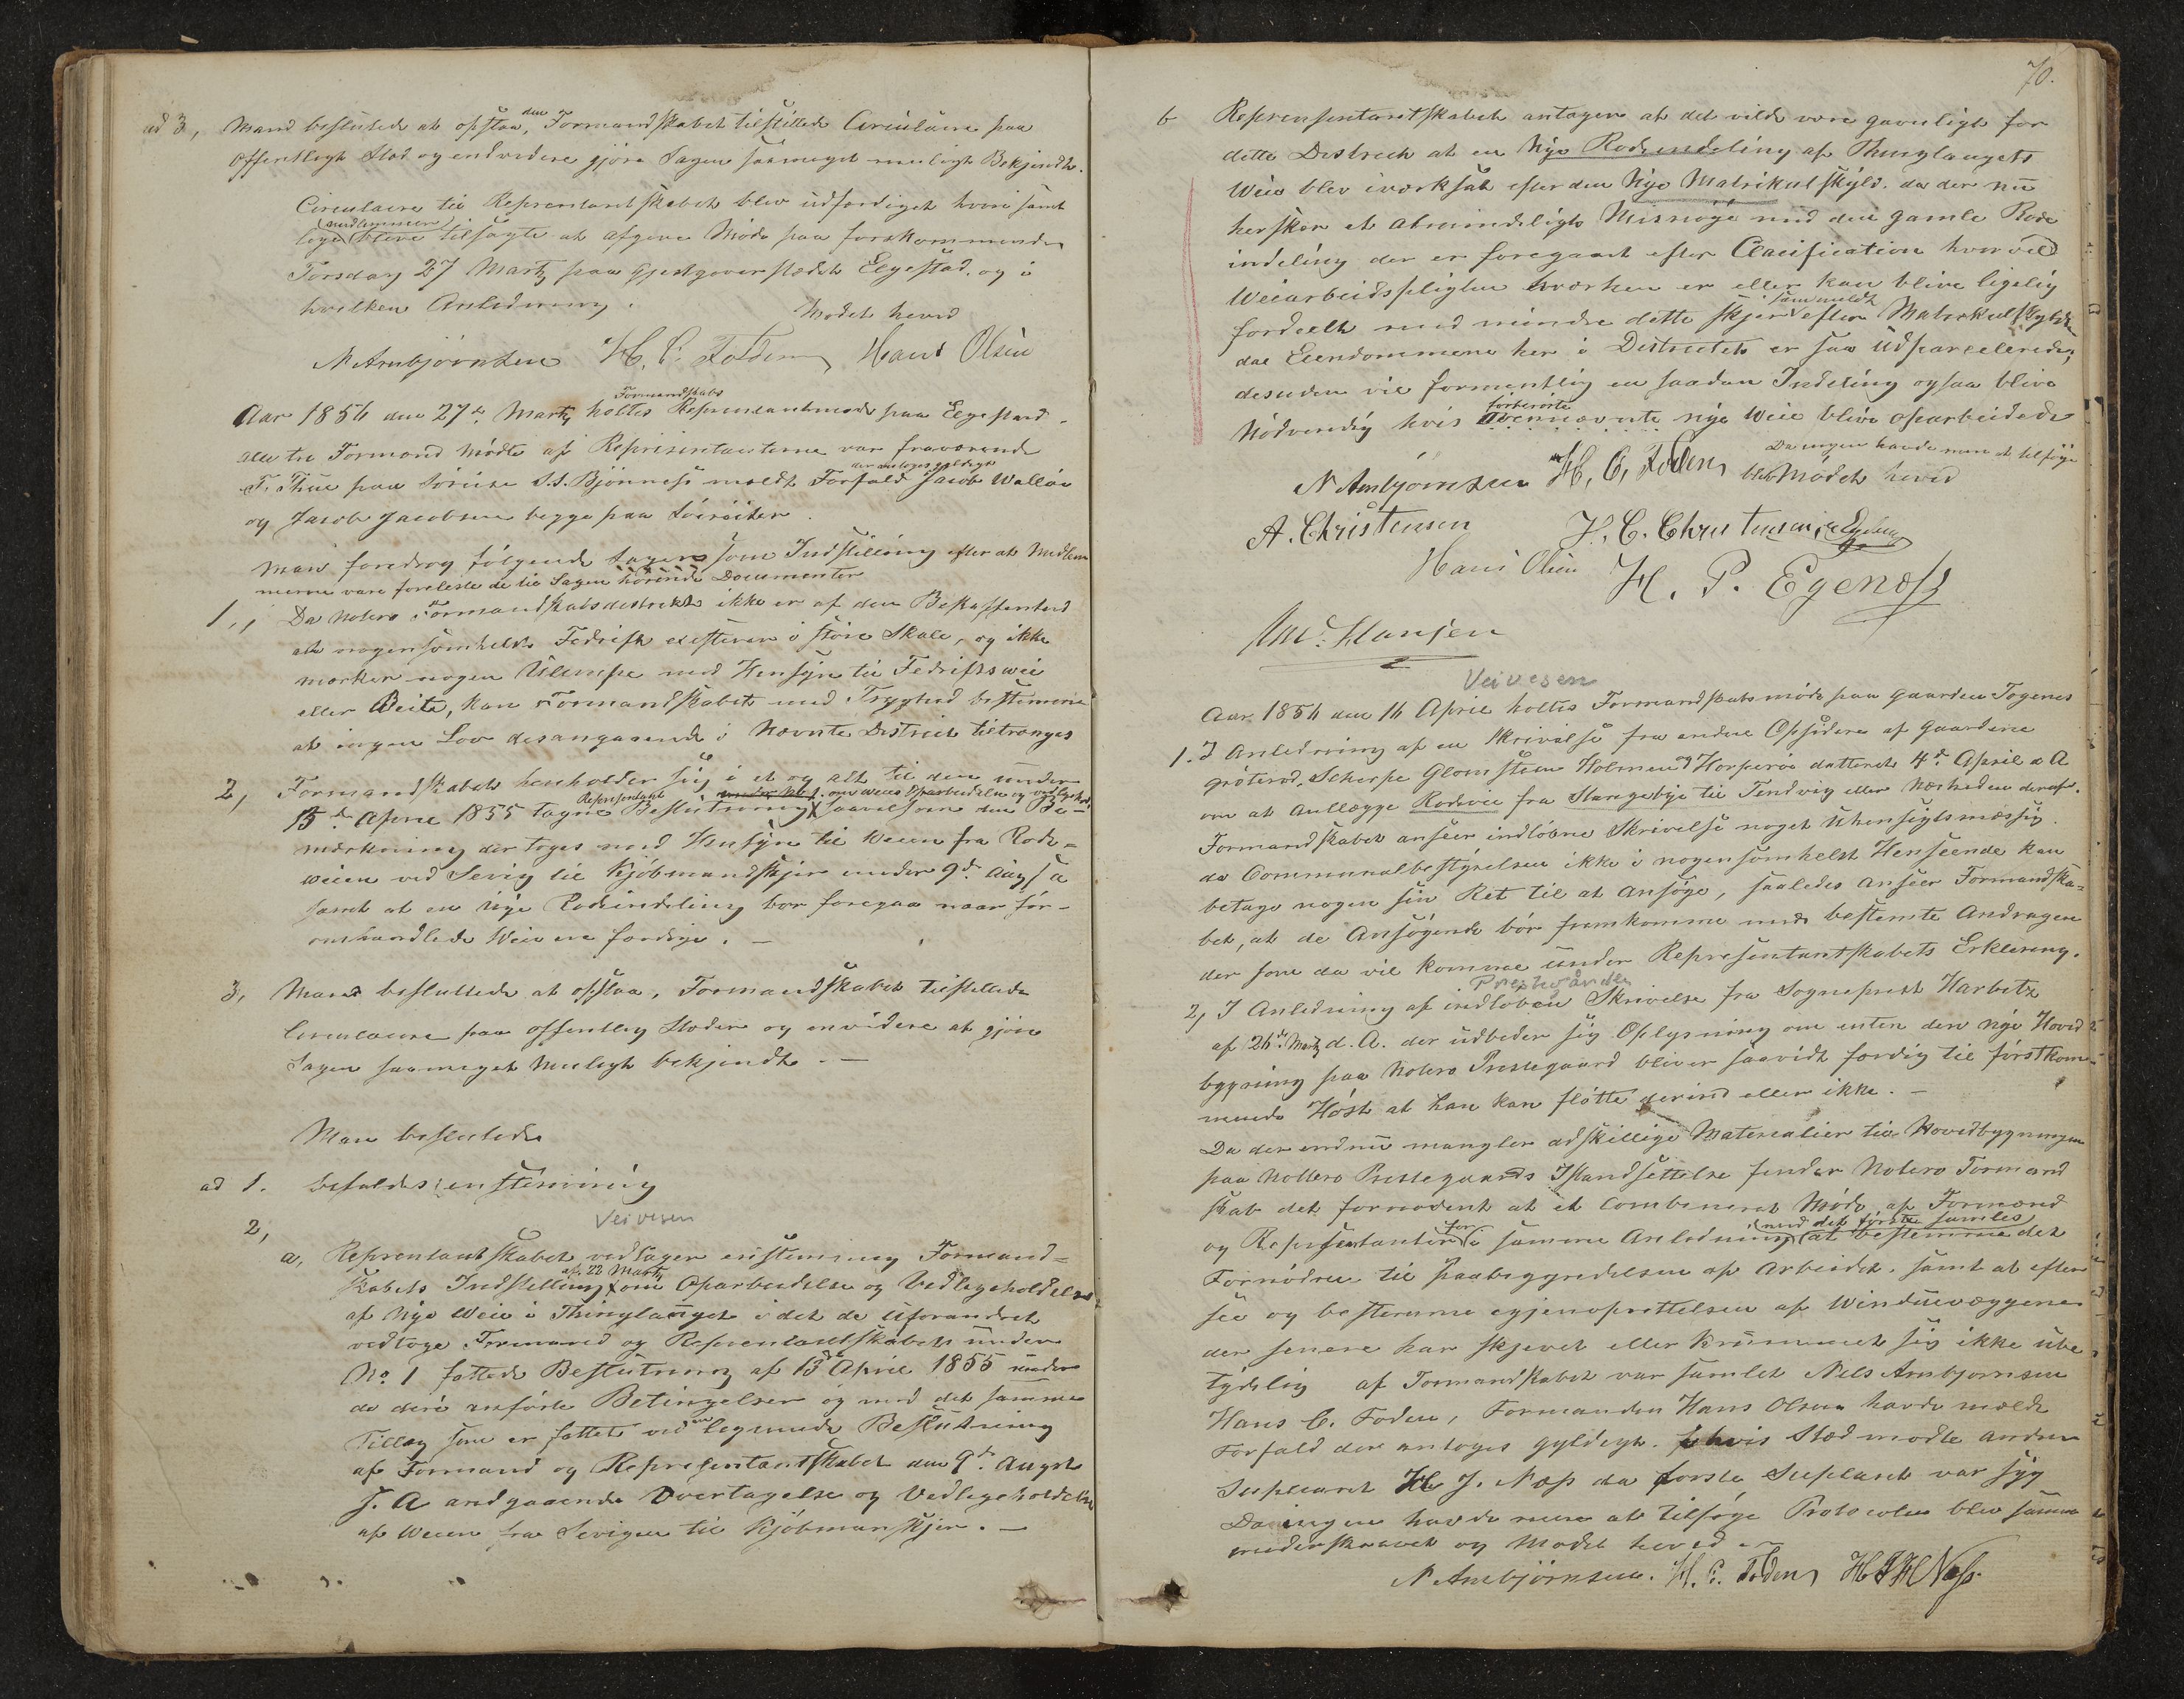 ad 3, Mand besluttede at opslaa, den Formandskabet tilstillede Circulaire paa
offentligt Stæd og endvidere gjöre Sagen saameget muligt Bekjendt.
Circulaire til Reprentantskabet blev udfærdiget hvori samt
lige (medlemmer) bleve tilsagte at afgive Möde paa forekommende
Torsdag 27 Martz paa Gjestgiverstædet Elgestad. og i
hvilken Anledning. Mödet hevet
N Arnbjörnsen H. C. Foden Hans Olsen
Aar 1856 den 27de Martz holtes Formandskabs Representantmöde paa Elgestad.
alle tre Formænd Mödte af Representanterne var fraværende
F. Thue paa Sörise S.S. Bjönness meldt Forfald der antoges gyldigt Jacob Wallöe
og Jacob Jacobsen begge paa Söireiser.
Man foredrog fölgende Sager som Indstilling efter at Medlem
merne vare foreleste de til Sagen hörende Documenter
1., Da Nöterö Formandskabsdestrikt ikke er af den Beskaffenhed
at nogensomhelst Fedrift exesterer i större Skale, og ikke
mærker nogen Ulempe med Hensÿn til Fedriftsveie
eller Beite, kan Formandskabet med Trÿghed bestemme
at ingen Lov desangaaende i Nævnte District tiltrænges
2, Formandskabet henholder sig i et og alt til den under
15de April 1855 tagne Representant Beslutning under No 1. om Weies Oparbeidelse og vedligehold. saavelsom den Be-
mærkning der toges med Hensÿn til Weien fra Rode-
weien ved Sevig til Kjöbmandskjær under 9de Aug. s A
samt at en nÿe Rodeindeling bör foregaa naar för-
omhandlede Weie ere færdige. —
3, Mand besluttede at opslaa, Formandskabet tilstillede
Circulaire paa offentlig Stæder og envidere at gjöre
Sagen saameget Muligt bekjendt. —
Man besluttede
ad 1. bifaldes enstemmig
Veivesen
2,
a, Reprentantskabet vedtager enstemmig Formand-
skabets Indstilling af 22 Martz om Oparbeidelse og Vedligeholdelse
af Nÿe Weie i Thinglauget i det de uforandret
vedtoge Formand og Reprentantskabets under
No 1 fattede Beslutning af 15de April 1855 under
de deri anförte Betingelser og med det samme
Tillæg som er fattet ved legende Beslutning
af Formand og Representantskabet den 9de Augst
f. A andgaaende Overtagelse og Vedligeholdelse
af Weien fra Sevigen til Kjöbmanskjær. —
70.
b Reprensentantskabet antager at det vilde være gavnligt for
dette Destrict at en Nÿe Rodeindeling af Thinglaugets
Weie blev iværksat efter den Nÿe Matrikulskÿld. da der nu
hersker et almindeligt Misnöye med den gamle Rode
indeling der er foregaaet efter Clacification hvorved
Weiarbeidspligten hværken er eller kan blive ligelig
fordeelt med mindre dette skjer sammeldt efter Matrikulskÿlden
daa Eiendommene her i Destrictet er saa udparcelerede,
desuden vil formentlig en saadan Indeling ogsaa blive
Nödvendig hvis förberörte nye Weie blive oparbeidede
Da ingen havde mere at tilföye
N Arnbjörnsen H. C. Foden blev Mödet hevet
A. Christensen H. C. Christensen
Hans Olsen H. P. Egenæss
And. Hansen
Veivesen
Aar 1856 den 16 April holtes Formandskabsmöde paa Gaarden Togenes
1. I Anledning af en Skrivelse fra endere Opsidere af Gaardene
Gröterod, Scherpe Glomsteen Holmen & Horperöe datteret 4de April d A
om at Anllægge Rodevie fra Stangebye til Tendvig eller Nærheden deraf.
Formandskabet anseer indlöbne Skrivelse noget Uhensigtsmæssig.
da Communalbestÿrelsen ikke i nogensomhelst Henseende kan
betage nogen sin Ret til at Ansöge, saaledes anseer Formandska-
bet, at de Ansögende bör fremkomme med bestemte Andragen
der som da vil komme under Representantskabets Erklering.
Prestegården
2, I Anledning af indloben Skrivelse fra Sogneprest Harbitz
af 26de Martz d. A. der udbeder sig Oplysning om enten den nÿe Hoved
bygning paa Nöterö Prestegaard bliver saavidt færdig til förstkom-
mende Höst at han kan flötte derind eller ikke. —
Da der endnu mangler adskillige Materealier til Hovedbygningen
paa Nötterö Prestegaards Istandsettelse finder Nöterö Formand
skab det fornödent at et Combeneret Möde af Formænd
og Representanter for i samme Anledning (med det förste samles) at bestemme det
Fornödne til Paabegyndelsen af Arbeidet. samt at efter
see og bestemme egjenoprettelsen af Winduevæggene
der senere har skjevet eller Krummet sig ikke ube
tydelig af Formandskabet var samlet Nels Arnbjornsen
Hans C. Foden, Formanden Hans Olsen havde meldt
Forfald der antoges gyldigt. I hvis Stæd mödte anden
Supleant H. J. Næss da förste Supleant var sÿg
Da ingen havde mere at tilföye Protocolen blev samme
underskrevet og Mödet hevet
N Arnbjörnsen. H. C. Foden H J H Næss